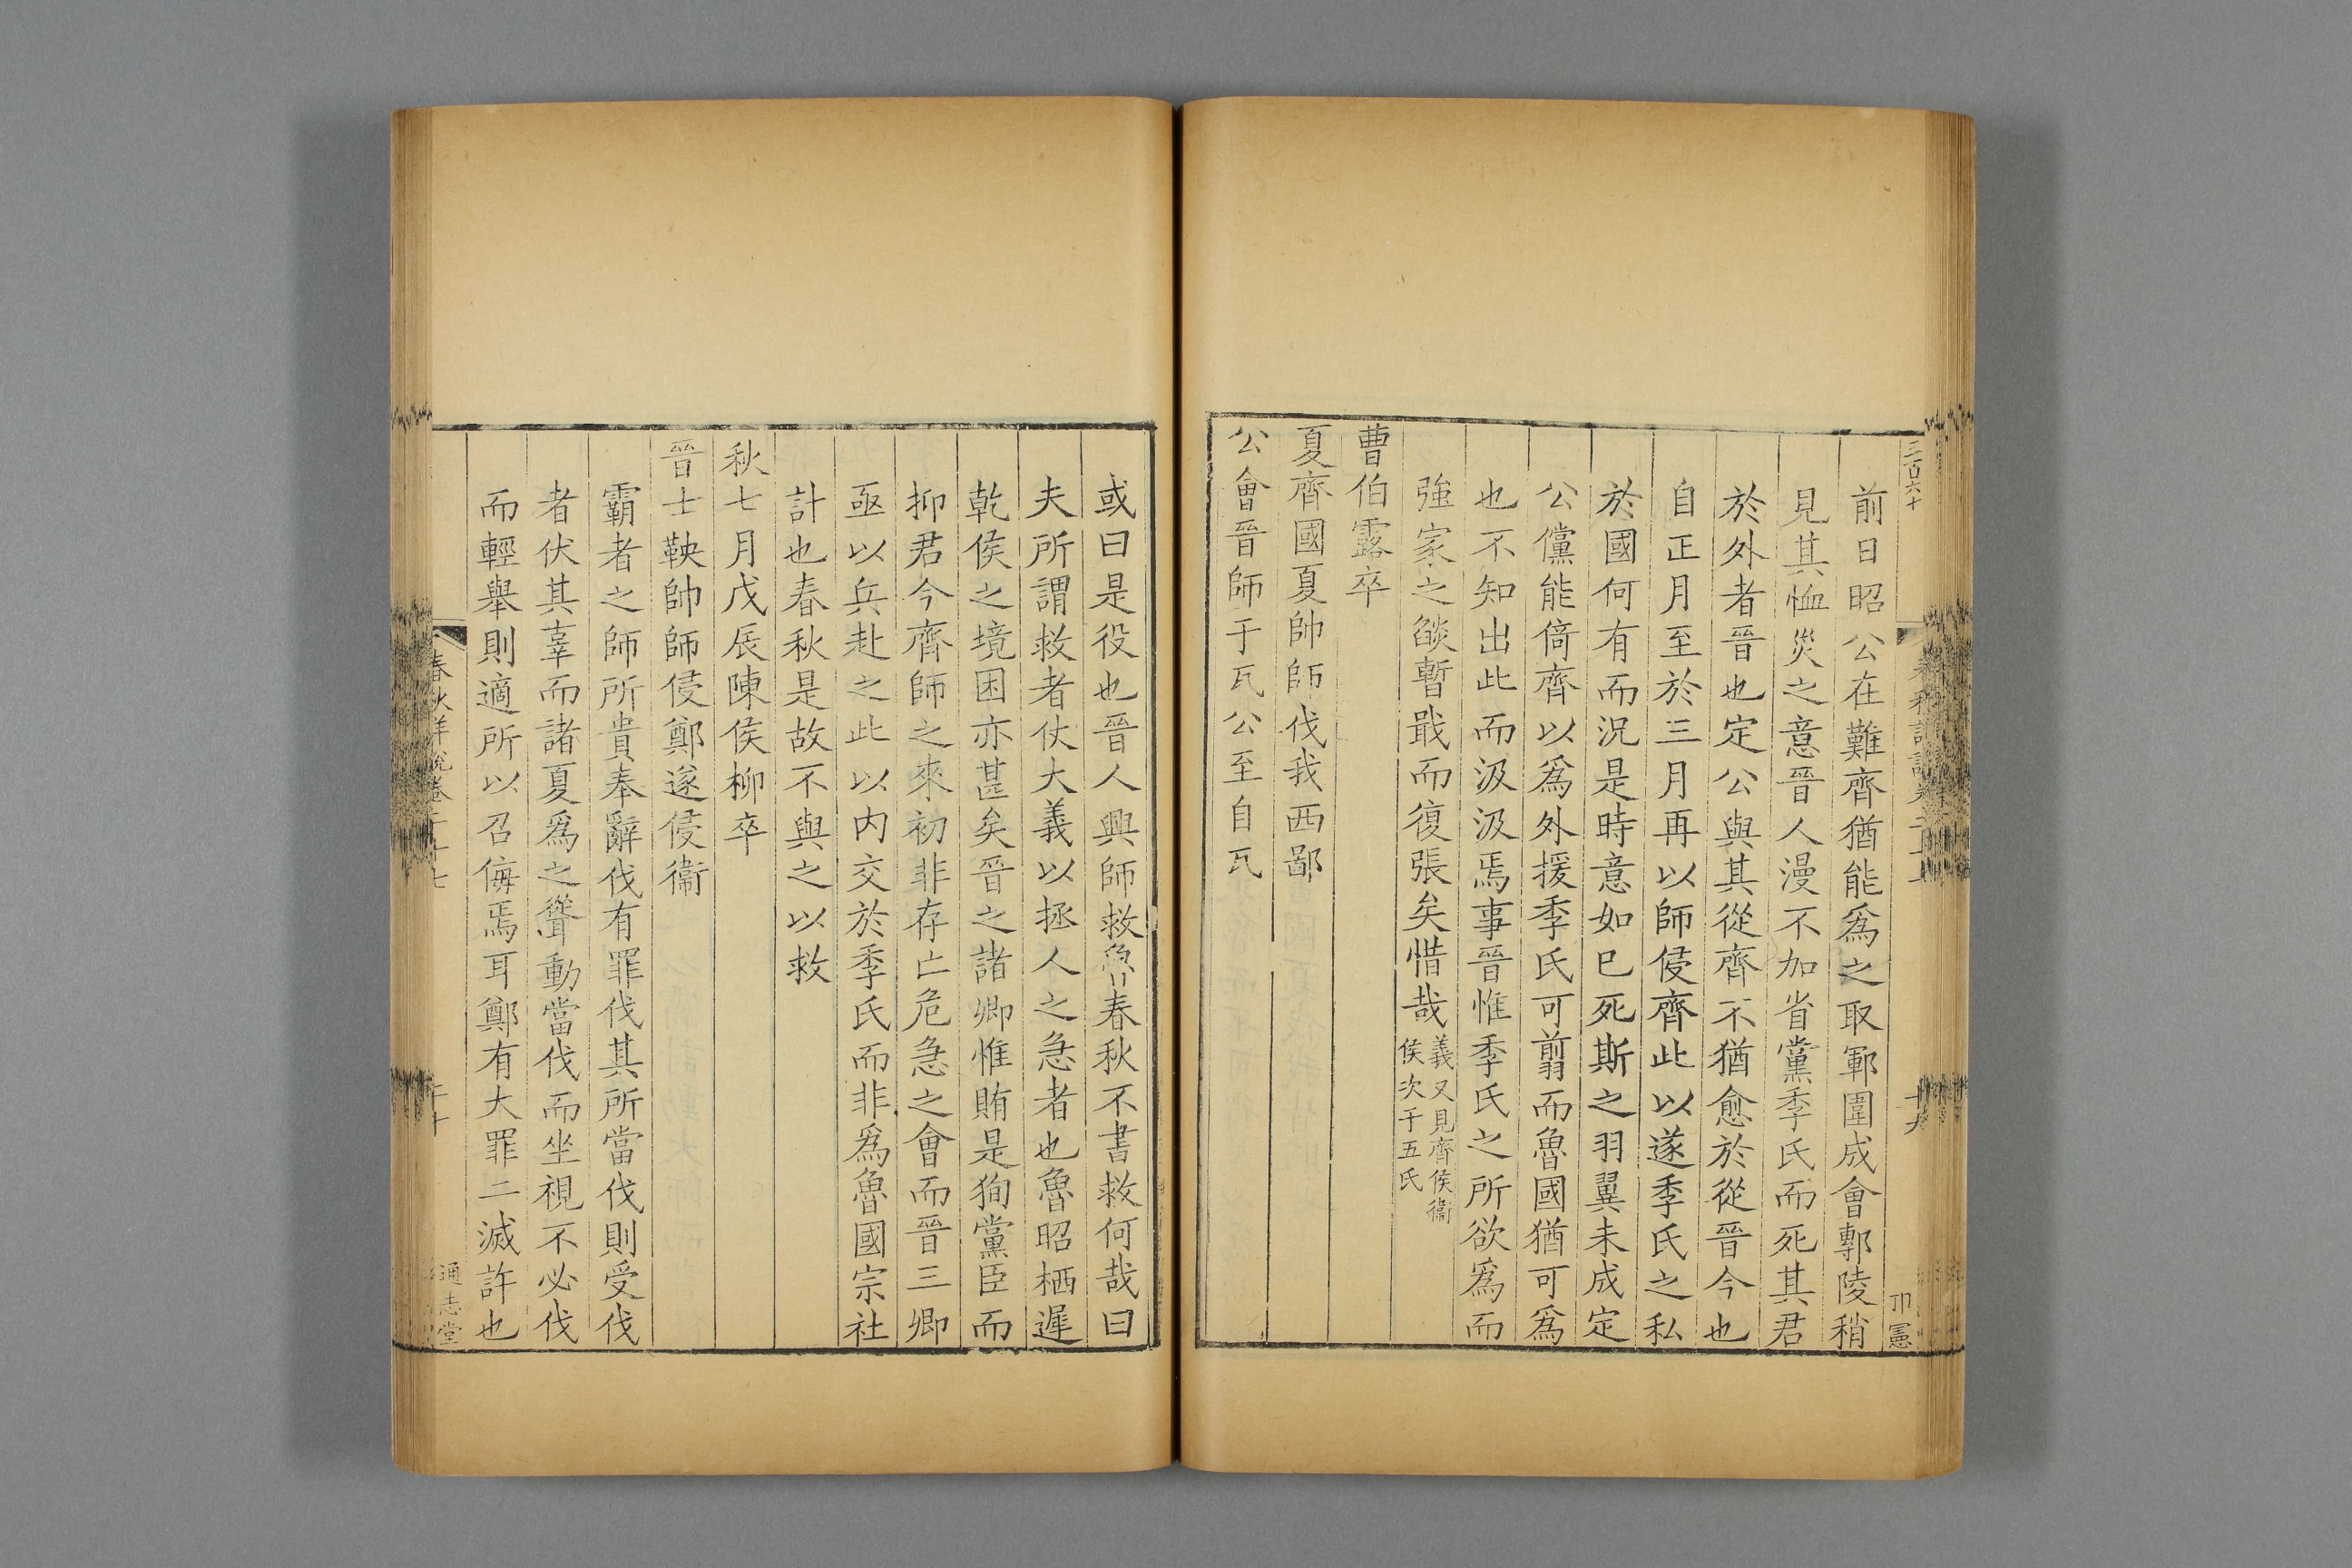 二百六十
前日昭公在難齊猶能爲之取鄆圍成會鄟陵稍
見其恤災之意晉人漫不加省黨季氏而死其君
於外者晉也定公與其從齊不猶愈於從晉今也
自正月至於三月再以師侵齊此以遂季氏之私
於國何有而況是時意如巳死斯之羽翼未成定
公儻能倚齊以爲外援季氏可翦而魯國猶可爲
也不知出此而汲汲焉事晉惟季氏之所欲爲而
強家之燄暫戢而復張矣惜哉
義又見齊侯衞
侯次于五氏
曹伯露卒
夏齊國夏帥師伐我西鄙
公會晉師于瓦公至自瓦
或曰是役也晉人興師救魯春秋不書救何哉曰
夫所謂救者仗大義以拯人之急者也魯昭栖遲
乾侯之境困亦甚矣晉之諸卿惟賄是狥黨臣而
抑君今齊師之來初非存亡危急之會而晉三卿
亟以兵赴之此以内交於季氏而非爲魯國宗社
計也春秋是故不與之以救
秋七月戊辰陳侯柳卒
晉士鞅帥師侵鄭遂侵衞
霸者之師所貴奉辭伐有罪伐其所當伐則受伐
者伏其辜而諸夏爲之聳動當伐而坐視不必伐
而輕舉則適所以召侮焉耳鄭有大罪二滅許也
春秋詳說卷二十七
通志堂